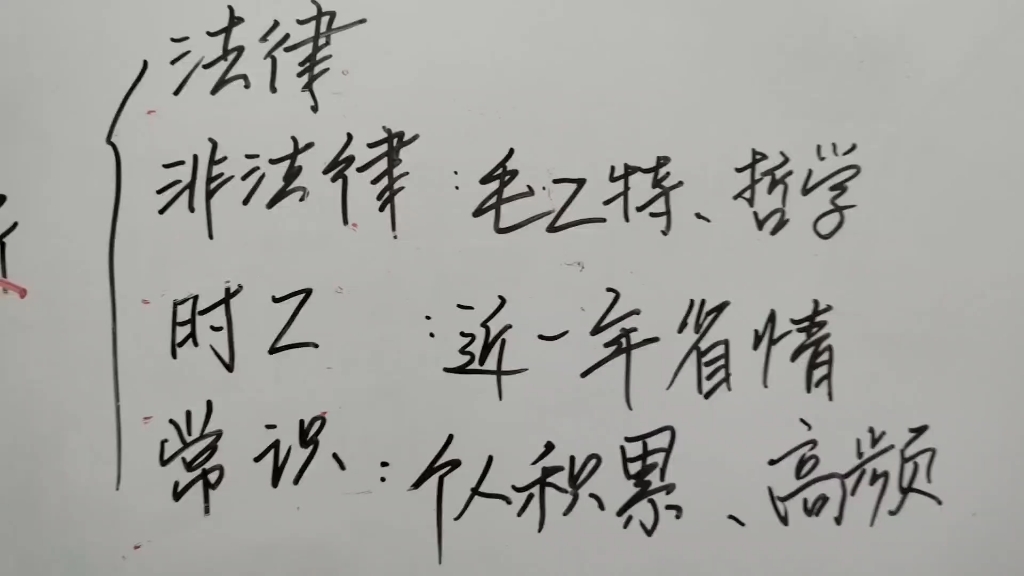 法律
非法律:毛Z特、哲学
时Z:近一年省情
常识:个人积累、高频